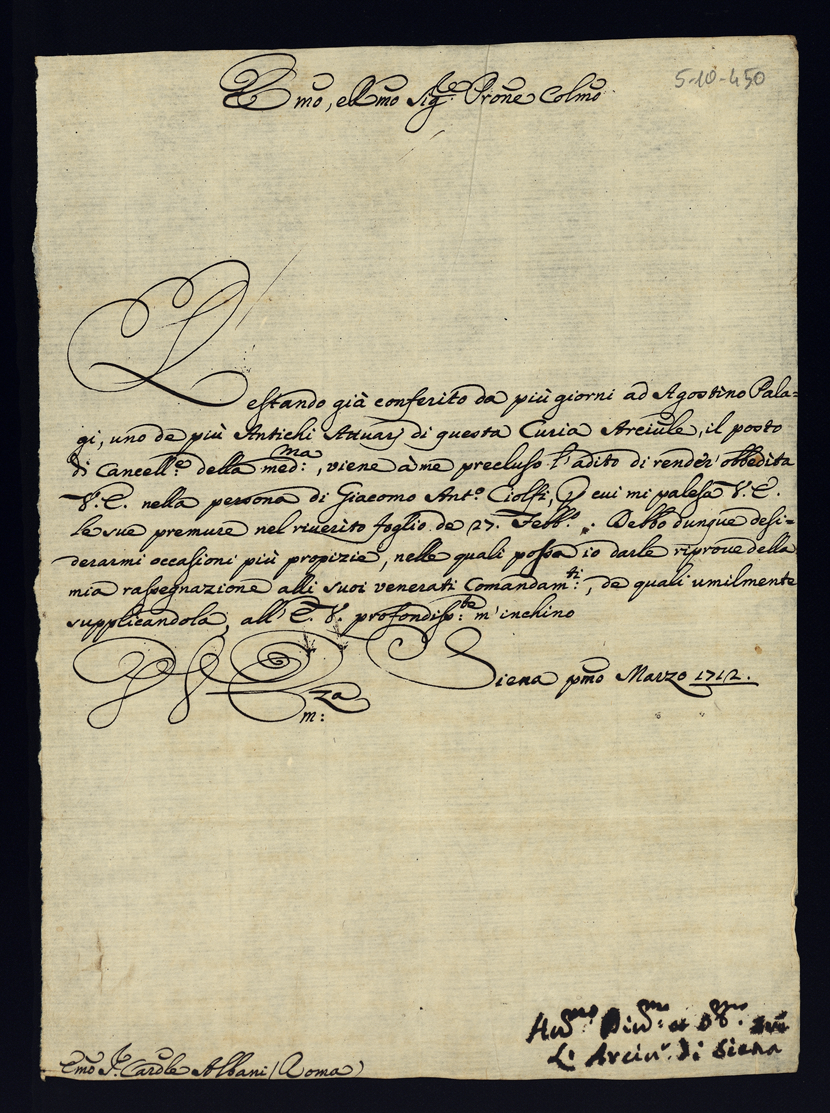 5-10-450
Emo, e Rmo Sig.re Prone Colmo
Restando già conferito da più giorni ad Agostino Pala=
gi, uno de più Antichi Attuarj di questa Curia Arciule, il posto
di Cancell.e della med:ma, viene à me precluso l'adito di render obbedita
V.E. nella persona di Giacomo Ant.o Ciolfi, p cui mi palesa V.E.
le sue premure nel riverito foglio de 27. Febb.o. Debbo dunque desi=
derarmi occasioni più propizie, nelle quali possa io darle riprove della
mia rassegnazione alli suoi venerati Comandam:ti, de quali umilmente
supplicandola, all' E.V. profondiss:te m'inchino
Siena pmo Marzo 1712.
Emo S. Cardle Albani (Roma)
L'Arciv.o di Siena